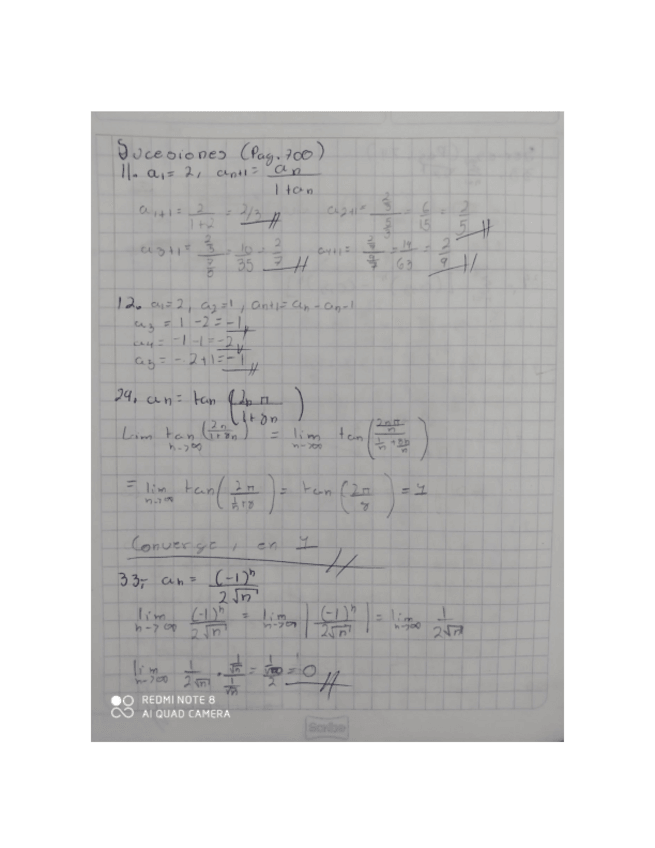 Sucesiones (Pag. 700)
11. a₁ = 2, aₙ₊₁ = aₙ / 1 + aₙ
a₁₊₁ = 2 / 1+2 = 2/3 a₂₊₁ = = 6/15 = 2/5
a₃₊₁ = = 10/35 = 2/7 = 14/63 = 2/9
12. a₁ = 2, a₂ = 1, aₙ₊₁ = aₙ - aₙ-1
a₃ = 1 - 2 = -1
a₄ = -1 - 1 = -2
a₅ = - 2 + 1 = -1
29. aₙ = tan (2nπ / 1+8n)
Lim n->∞ tan = lim n->∞ tan
= lim n->∞ tan = tan (2π / 8) = 1
Converge, en 1
33.- aₙ = (-1)ⁿ / 2√n
lim n->∞ (-1)ⁿ / 2√n = lim n->∞ | (-1)ⁿ / 2√n | = lim n->∞ 1 / 2√n
lim n->∞ 1 / 2√n · = 0
REDMI NOTE 8
AI QUAD CAMERA
Scribe